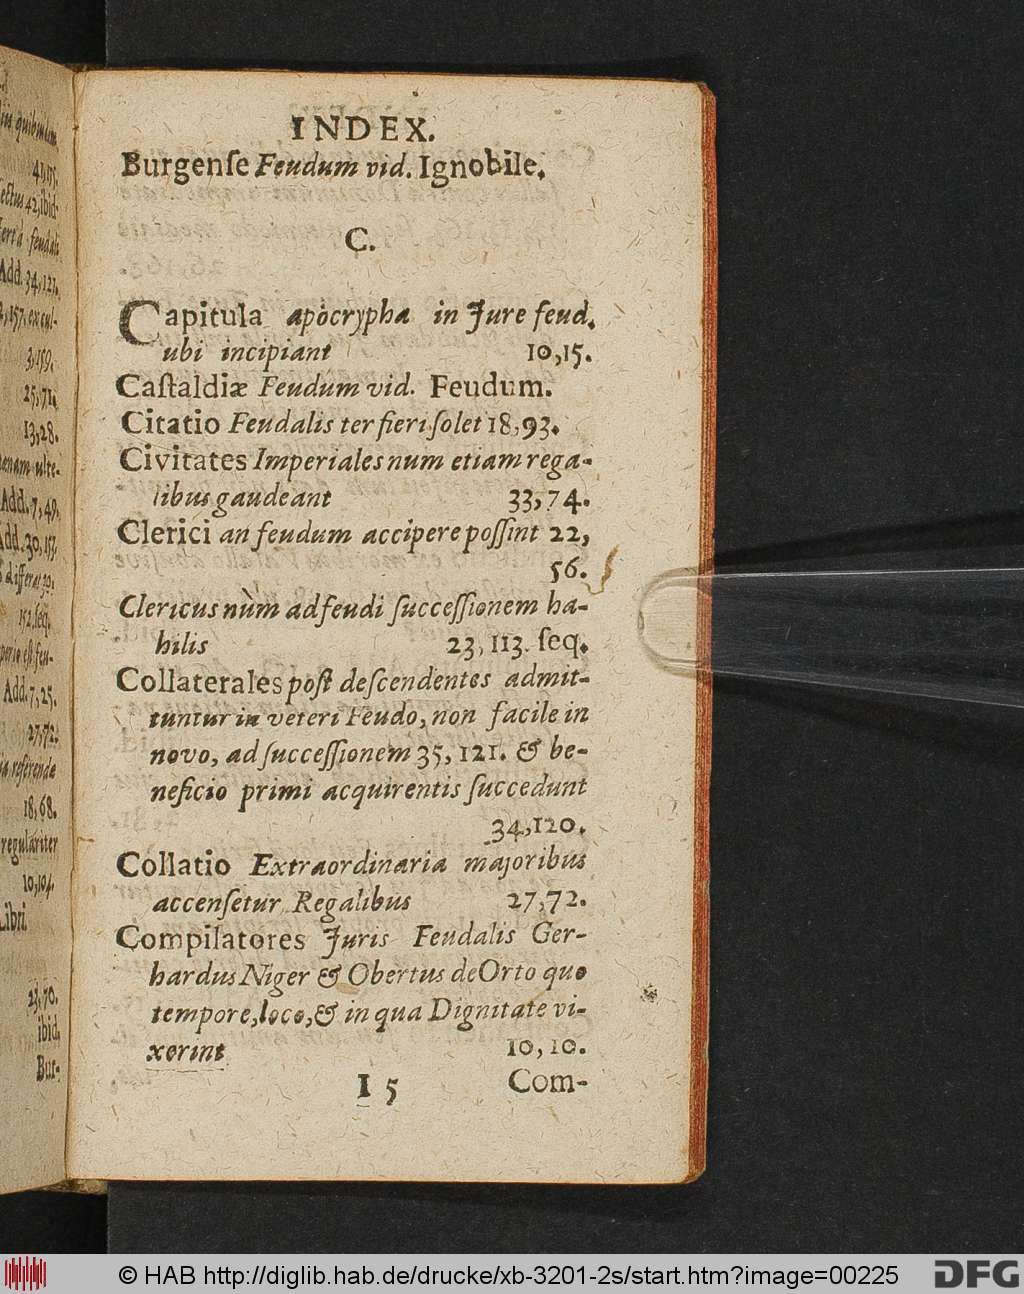 iis quibusdam
41,15.
42,ibid.
feudali
Add. 34,121.
3,159.
25,71.
13,28.
Add. 7,49.
Add. 30,157.
152.seq.
Add. 7,25.
27,72.
referenda
18,68.
regulariter
10,104.
Libri
23,70.
ibid.
Bur-
INDEX.
Burgenſe Feudum vid. Ignobile.
C.
Capitula apòcrypha in Jure feud.
ubi incipiant 10,15.
Caſtaldiæ Feudum vid. Feudum.
Citatio Feudalis ter fieri ſolet 18,93.
Civitates Imperiales num etiam rega-
libus gaudeant 33,74.
Clerici an feudum accipere poſſint 22,
56.
Clericus nùm ad feudi ſucceſſionem ha-
bilis 23, 113. ſeq.
Collaterales poſt deſcendentes admit-
tuntur in veteri Feudo, non facile in
novo, ad ſucceſſionem 35, 121. & be-
neficio primi acquirentis ſuccedunt
34,120.
Collatio Extraordinaria majoribus
accenſetur Regalibus 27,72.
Compilatores Juris Feudalis Ger-
hardus Niger & Obertus de Orto quo
tempore, loco, & in qua Dignitate vi-
xerint 10,10.
I 5 Com-
© HAB http://diglib.hab.de/drucke/xb-3201-2s/start.htm?image=00225
DFG